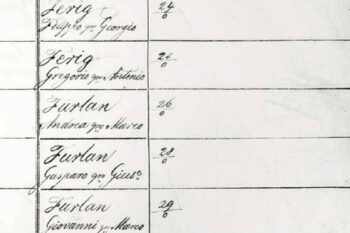 Ferig 24/0
Filippo qm Georgio
Ferig 25/0
Gregorio qm Antonio
Furlan 26/0
Andrea qm Marco
Furlan 28/0
Gasparo qm Giuse
Furlan 29/0
Giovanni qm Marco